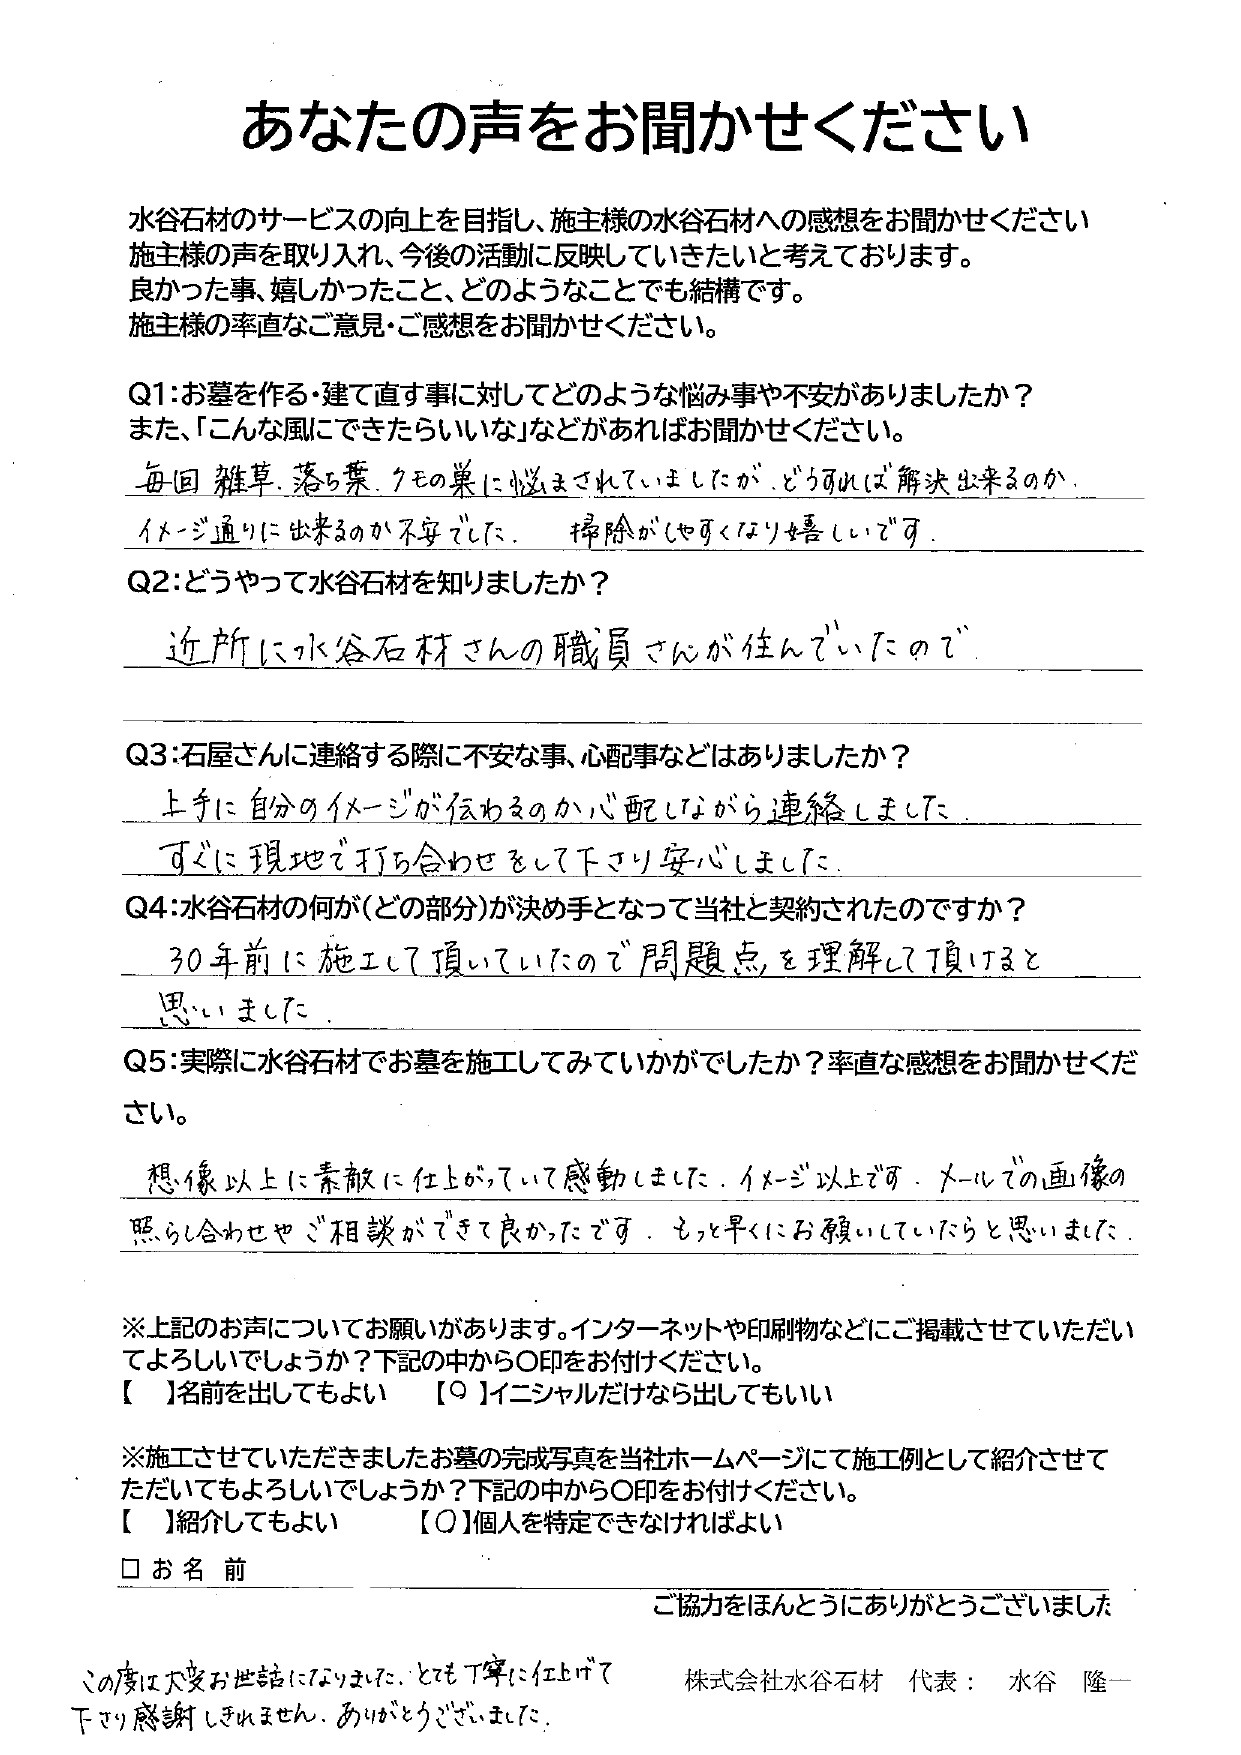 あなたの声をお聞かせください
水谷石材のサービスの向上を目指し、施主様の水谷石材への感想をお聞かせください
施主様の声を取り入れ、今後の活動に反映していきたいと考えております。
良かった事、嬉しかったこと、どのようなことでも結構です。
施主様の率直なご意見・ご感想をお聞かせください。
Q1:お墓を作る・建て直す事に対してどのような悩み事や不安がありましたか？
また、「こんな風にできたらいいな」などがあればお聞かせください。
毎回 雑草、落ち葉、クモの巣に悩まされていましたが、どうすれば解決出来るのか、
イメージ通りに出来るのか不安でした。 掃除がしやすくなり嬉しいです。
Q2:どうやって水谷石材を知りましたか？
近所に水谷石材さんの職員さんが住んでいたので
Q3:石屋さんに連絡する際に不安な事、心配事などはありましたか？
上手に自分のイメージが伝わるのか心配しながら連絡しました
すぐに現地で打ち合わせをして下さり安心しました。
Q4:水谷石材の何が(どの部分)が決め手となって当社と契約されたのですか？
30年前に施工して頂いていたので問題点を理解して頂けると
思いました。
Q5:実際に水谷石材でお墓を施工してみていかがでしたか？率直な感想をお聞かせくだ
さい。
想像以上に素敵に仕上がっていて感動しました。イメージ以上です。メールでの画像の
照らし合わせやご相談ができて良かったです。もっと早くにお願いしていたらと思いました。
※上記のお声についてお願いがあります。インターネットや印刷物などにご掲載させていただい
てよろしいでしょうか？下記の中から〇印をお付けください。
【　】名前を出してもよい　【〇】イニシャルだけなら出してもいい
※施工させていただきましたお墓の完成写真を当社ホームページにて施工例として紹介させて
ただいてもよろしいでしょうか？下記の中から〇印をお付けください。
【　】紹介してもよい　【〇】個人を特定できなければよい
□ お名 前
ご協力をほんとうにありがとうございました
この度は大変お世話になりました。とても丁寧に仕上げて
下さり感謝しきれません。ありがとうございました。
株式会社水谷石材　代表：　水谷　隆一